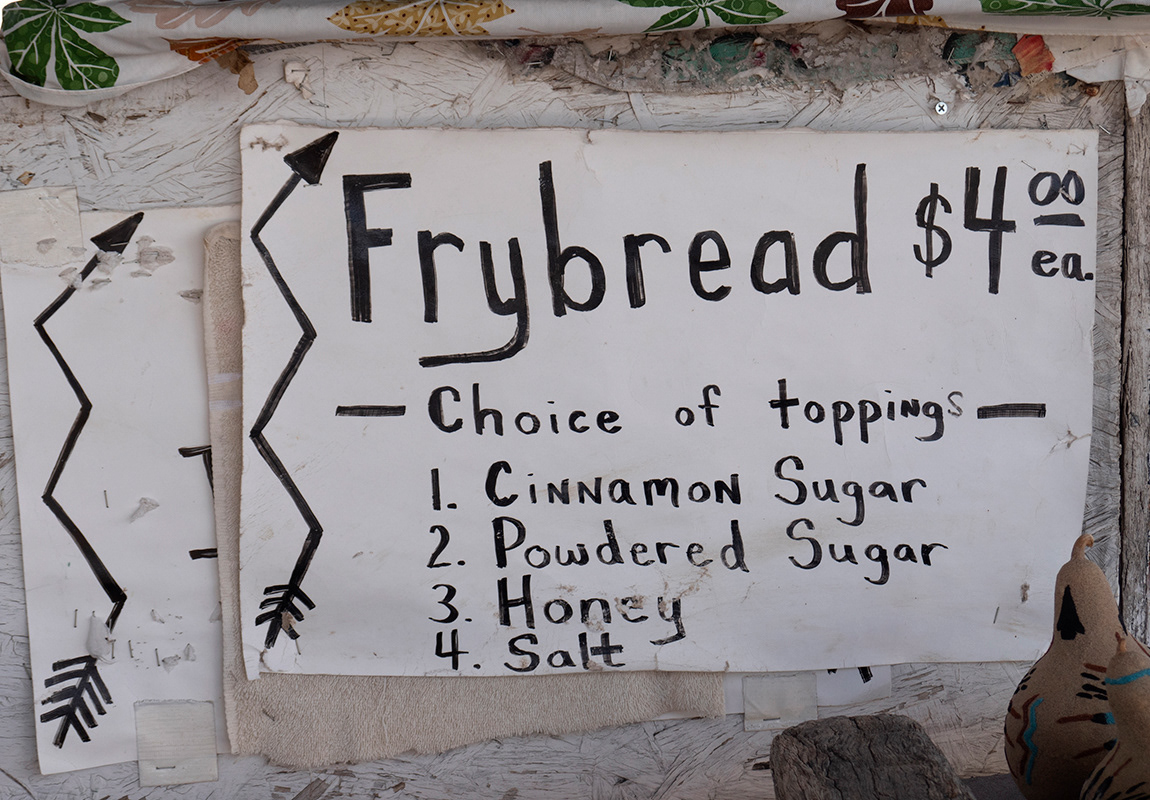 Frybread $4.00 ea.
— Choice of toppings —
1. Cinnamon Sugar
2. Powdered Sugar
3. Honey
4. Salt